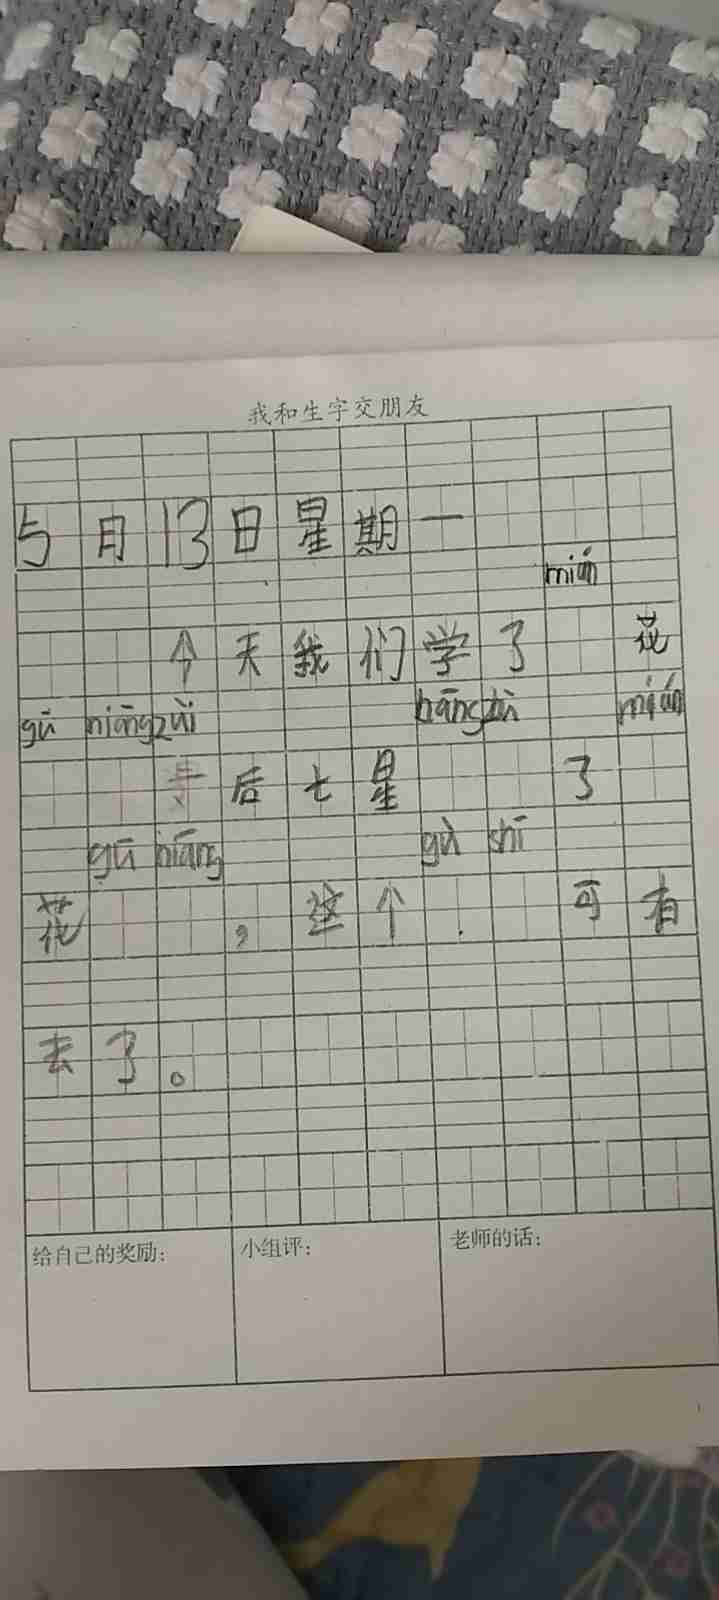 我和生字交朋友
5月13日星期一
mián
今天我们学了 花
gū niāng zuì bāng zù mián
后七星 了
gū niāng gù shī
花 , 这个 可有
去了。
给自己的奖励: 小组评: 老师的话: